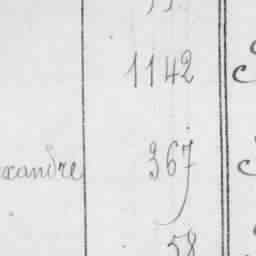 1142
xandre 367
58